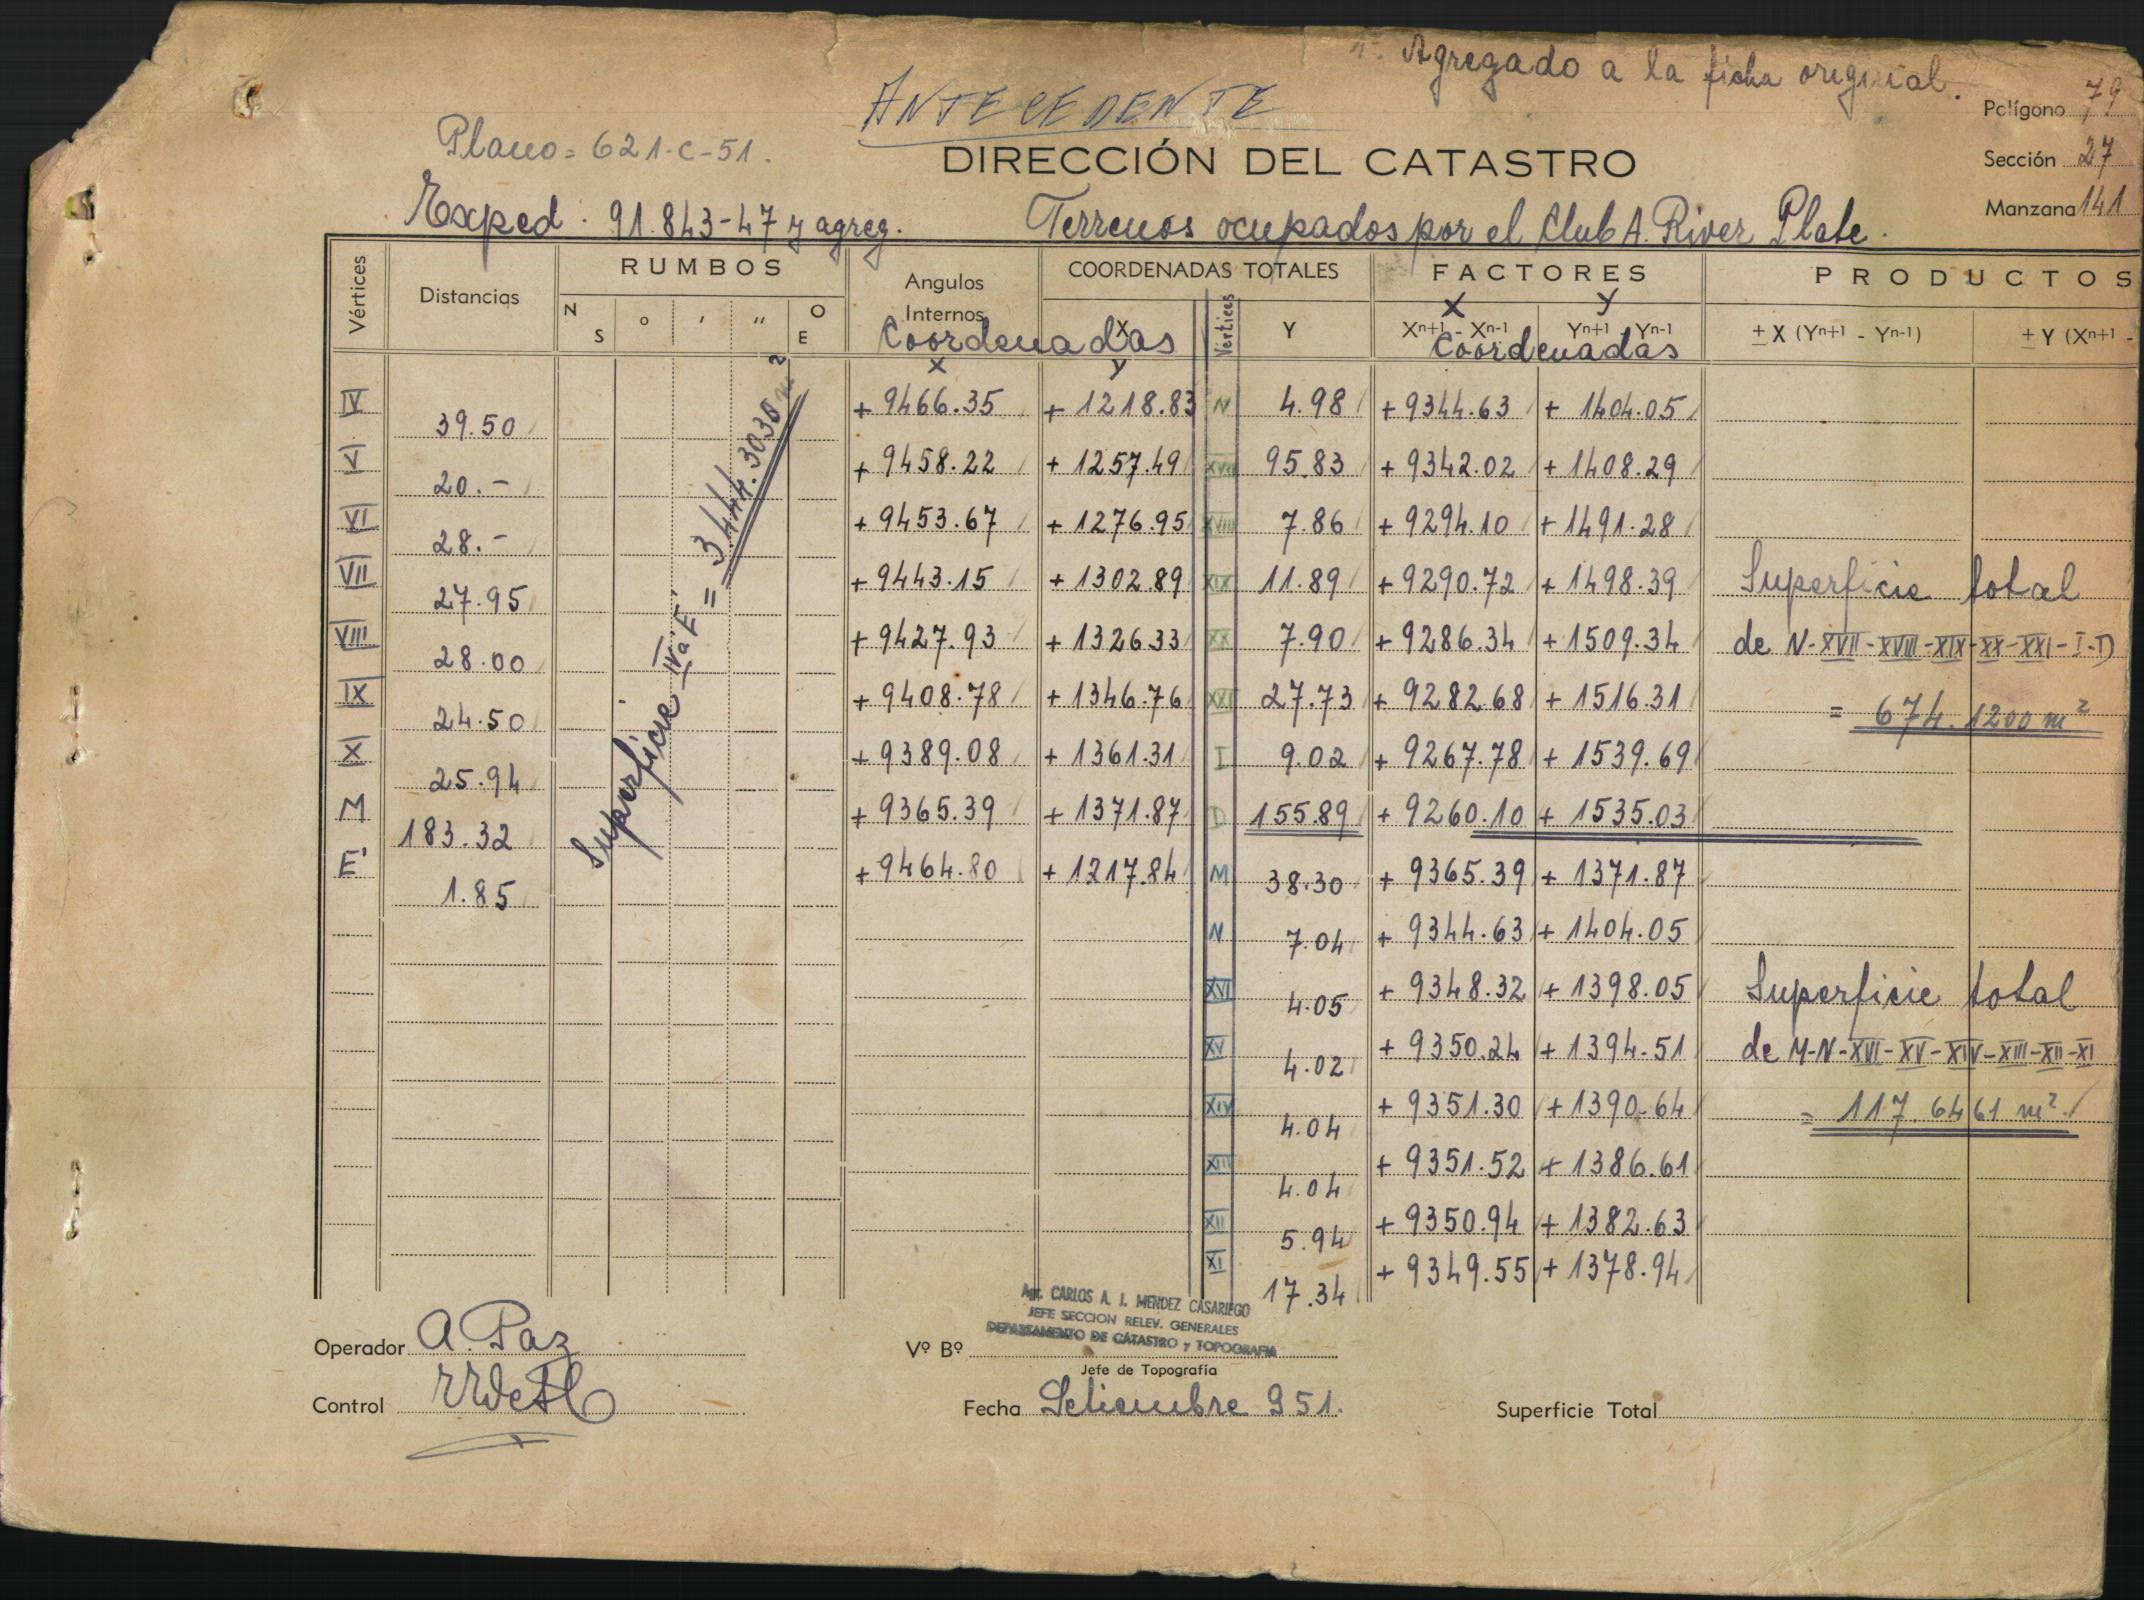 Agregado a la ficha original.
ANTECEDENTE
Plano = 621-C-51.
Polígono 79
DIRECCIÓN DEL CATASTRO
Sección 27
Exped. 91.843-47 y agreg. Terrenos ocupados por el Club A. River Plate.
Manzana 141
Vértices Distancias RUMBOS Angulos Internos COORDENADAS TOTALES FACTORES PRODUCTOS
N S o ' " O E Coordenadas X Vertices Y X Xn+1 - Xn-1 Y Yn+1 - Yn-1 Coordenadas ± X (Yn+1 - Yn-1) ± Y (Xn+1 -
X Y
IV +9466.35 +1218.83 N 4.98 +9344.63 +1404.05
39.50
V +9458.22 +1257.49 XVII 95.83 +9342.02 +1408.29
20.-
VI +9453.67 +1276.95 XVIII 7.86 +9294.10 +1491.28
28.-
VII +9443.15 +1302.89 XIX 11.89 +9290.72 +1498.39 Superficie total
27.95
VIII +9427.93 +1326.33 XX 7.90 +9286.34 +1509.34 de N-XVII-XVIII-XIX-XX-XXI-I-D
28.00
IX +9408.78 +1346.76 XXI 27.73 +9282.68 +1516.31 = 674.1200 m²
24.50
X +9389.08 +1361.31 I 9.02 +9267.78 +1539.69
25.94
M +9365.39 +1371.87 D 155.89 +9260.10 +1535.03
183.32
E' +9464.80 +1217.84 M 38.30 +9365.39 +1371.87
1.85
Superficie IV a E' = 3444.3030 m²
N 7.04 +9344.63 +1404.05
XVI 4.05 +9348.32 +1398.05 Superficie total
XV 4.02 +9350.24 +1394.51 de M-N-XVI-XV-XIV-XIII-XII-XI
XIV 4.04 +9351.30 +1390.64 = 117.6461 m².
XIII 4.04 +9351.52 +1386.61
XII 5.94 +9350.94 +1382.63
XI 17.34 +9349.55 +1378.94
Agr. CARLOS A. J. MENDEZ CASARIEGO
JEFE SECCION RELEV. GENERALES
DEPARTAMENTO DE CATASTRO y TOPOGRAFIA
Operador A. Paz Vº Bº
Jefe de Topografía
Control Fecha Setiembre 951. Superficie Total